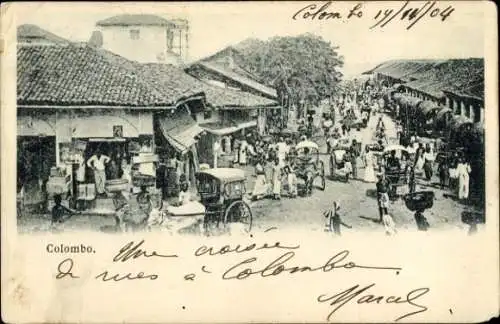 Colombo 19/11/04
Colombo.
Une croisée
de rues à Colombo
Marcel